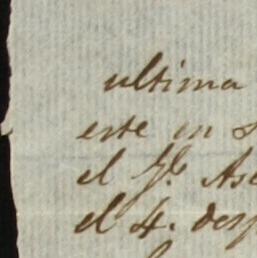 ultima
este en s
el Sr. Ase
el 4. desp